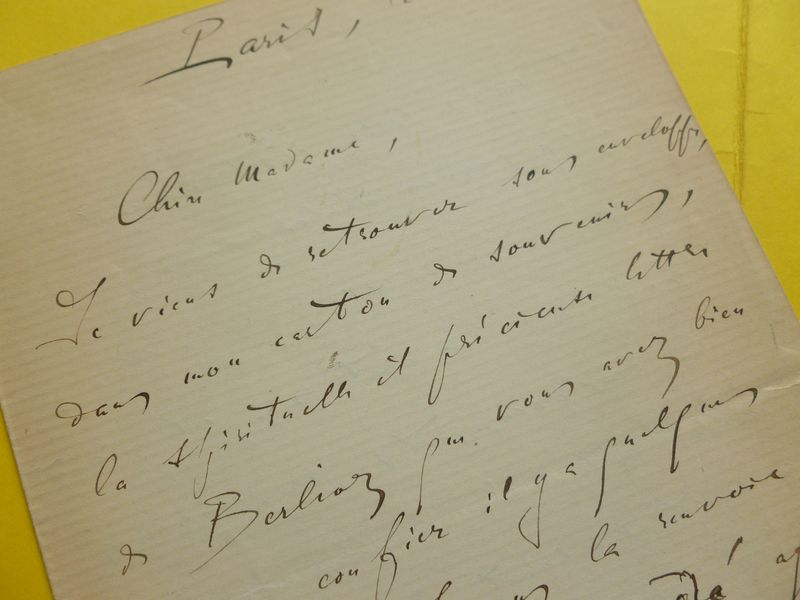 Paris,
Chère Madame,
Je viens de retrouver sous enveloppe,
dans mon carton de souvenirs,
la spirituelle et précieuse lettre
de Berlioz que vous avez bien
confier il y a quelques
la renvoie